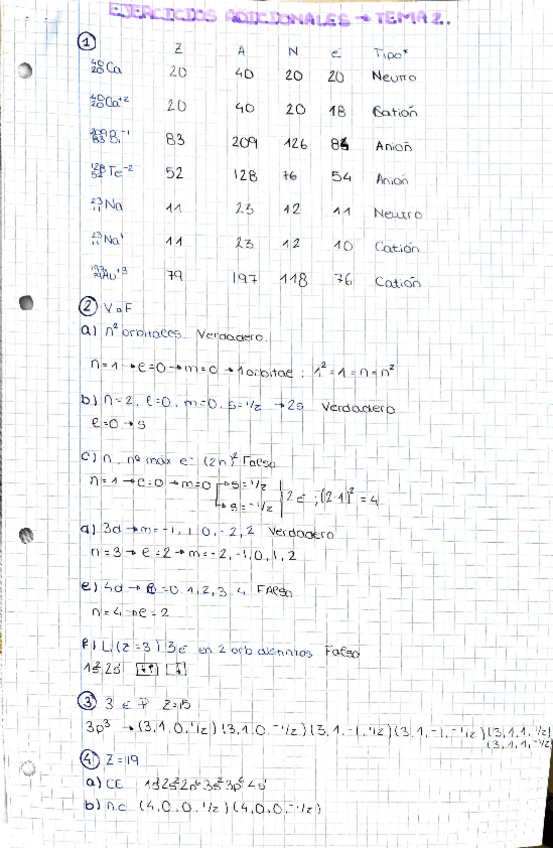 EJERCICIOS ADICIONALES → TEMA 2.
① Z A N e⁻ Tipo*
⁴⁰₂₀Ca 20 40 20 20 Neutro
⁴⁰₂₀Ca⁺² 20 40 20 18 Catión
²⁰⁹₈₃Bi⁻¹ 83 209 126 84 Anión
¹²⁸₅₂Te⁻² 52 128 76 54 Anión
²³₁₁Na 11 23 12 11 Neutro
²³₁₁Na⁺ 11 23 12 10 Catión
¹⁹⁷₇₉Au⁺³ 79 197 118 76 Catión
② V o F
a) n² orbitales. Verdadero.
n=1 → l=0 → m=0 → 1 orbital ; 1²=1=n=n²
b) n=2, l=0, m=0, s=1/2 → 2s Verdadero
l=0 → s
c) n, nº máx e⁻ (2n)² Falso
n=1 → l=0 → m=0 → s=1/2 → s=-1/2 2e⁻ ; (2·1)²=4
d) 3d → m=-1, 1, 0, -2, 2 Verdadero
n=3 → l=2 → m=-2, -1, 0, 1, 2
e) 4d → l=0, 1, 2, 3, 4 Falso
n=4 → l=2
f) Li (Z=3) 3e⁻ en 2 orb distintos Falso
1s² 2s¹ ↓↑ ↓
③ 3 e⁻ P Z=15
3p³ → (3,1,0,1/2) (3,1,0,-1/2) (3,1,-1,1/2) (3,1,-1,-1/2) (3,1,1,1/2)
(3,1,1,-1/2)
④ Z=19
a) CE 1s²2s²2p⁶3s²3p⁶4s¹
b) n.c (4,0,0,1/2) (4,0,0,-1/2)